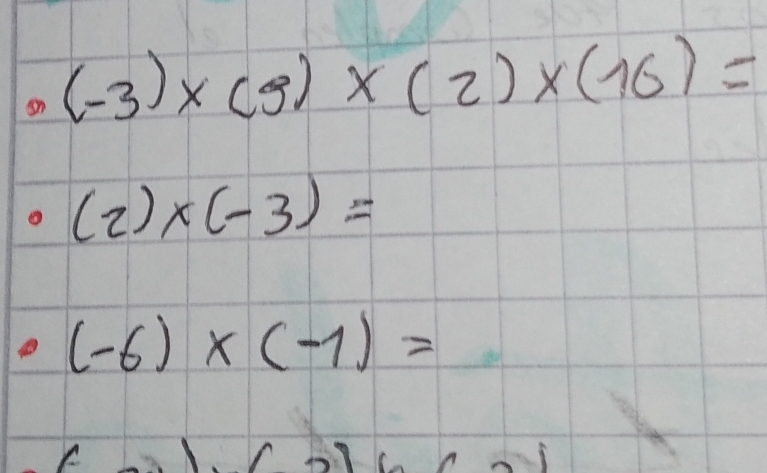 (-3)×(9)×(2)×(16)=
(2)×(-3)=
(-6)×(-1)=